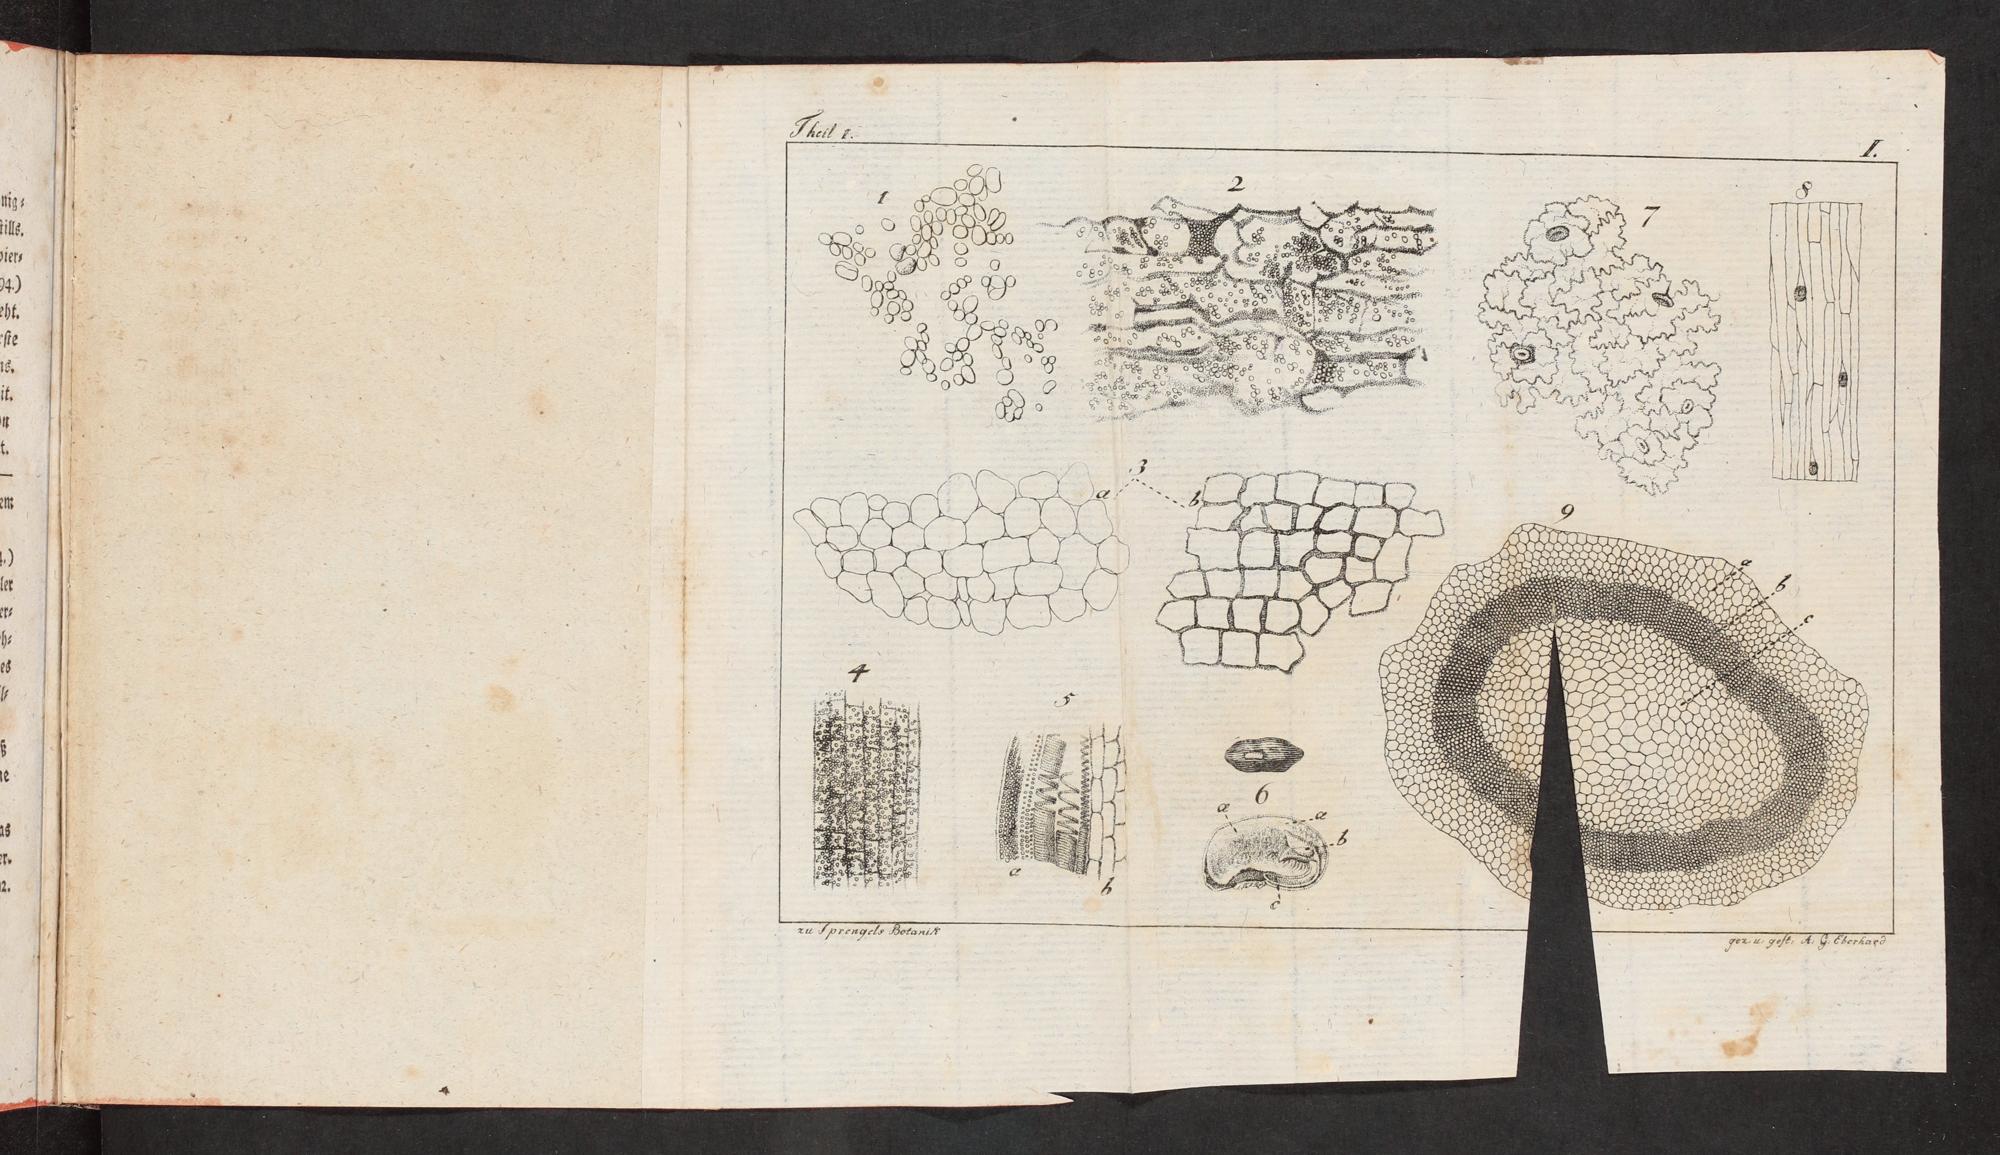 nig⸗
ſtills.
vier⸗
94.)
eht.
rſte
ns.
it.
on
t.
em
4.)
ler
er⸗
ch⸗
es
ß
ne
as
er.
12.
Theil 1.
I.
1
2
7
8
3
a
b
9
a
b
c
4
5
a
b
6
a
a
b
c
zu Sprengels Botanik
gez. u. gest. A. G. Eberhard